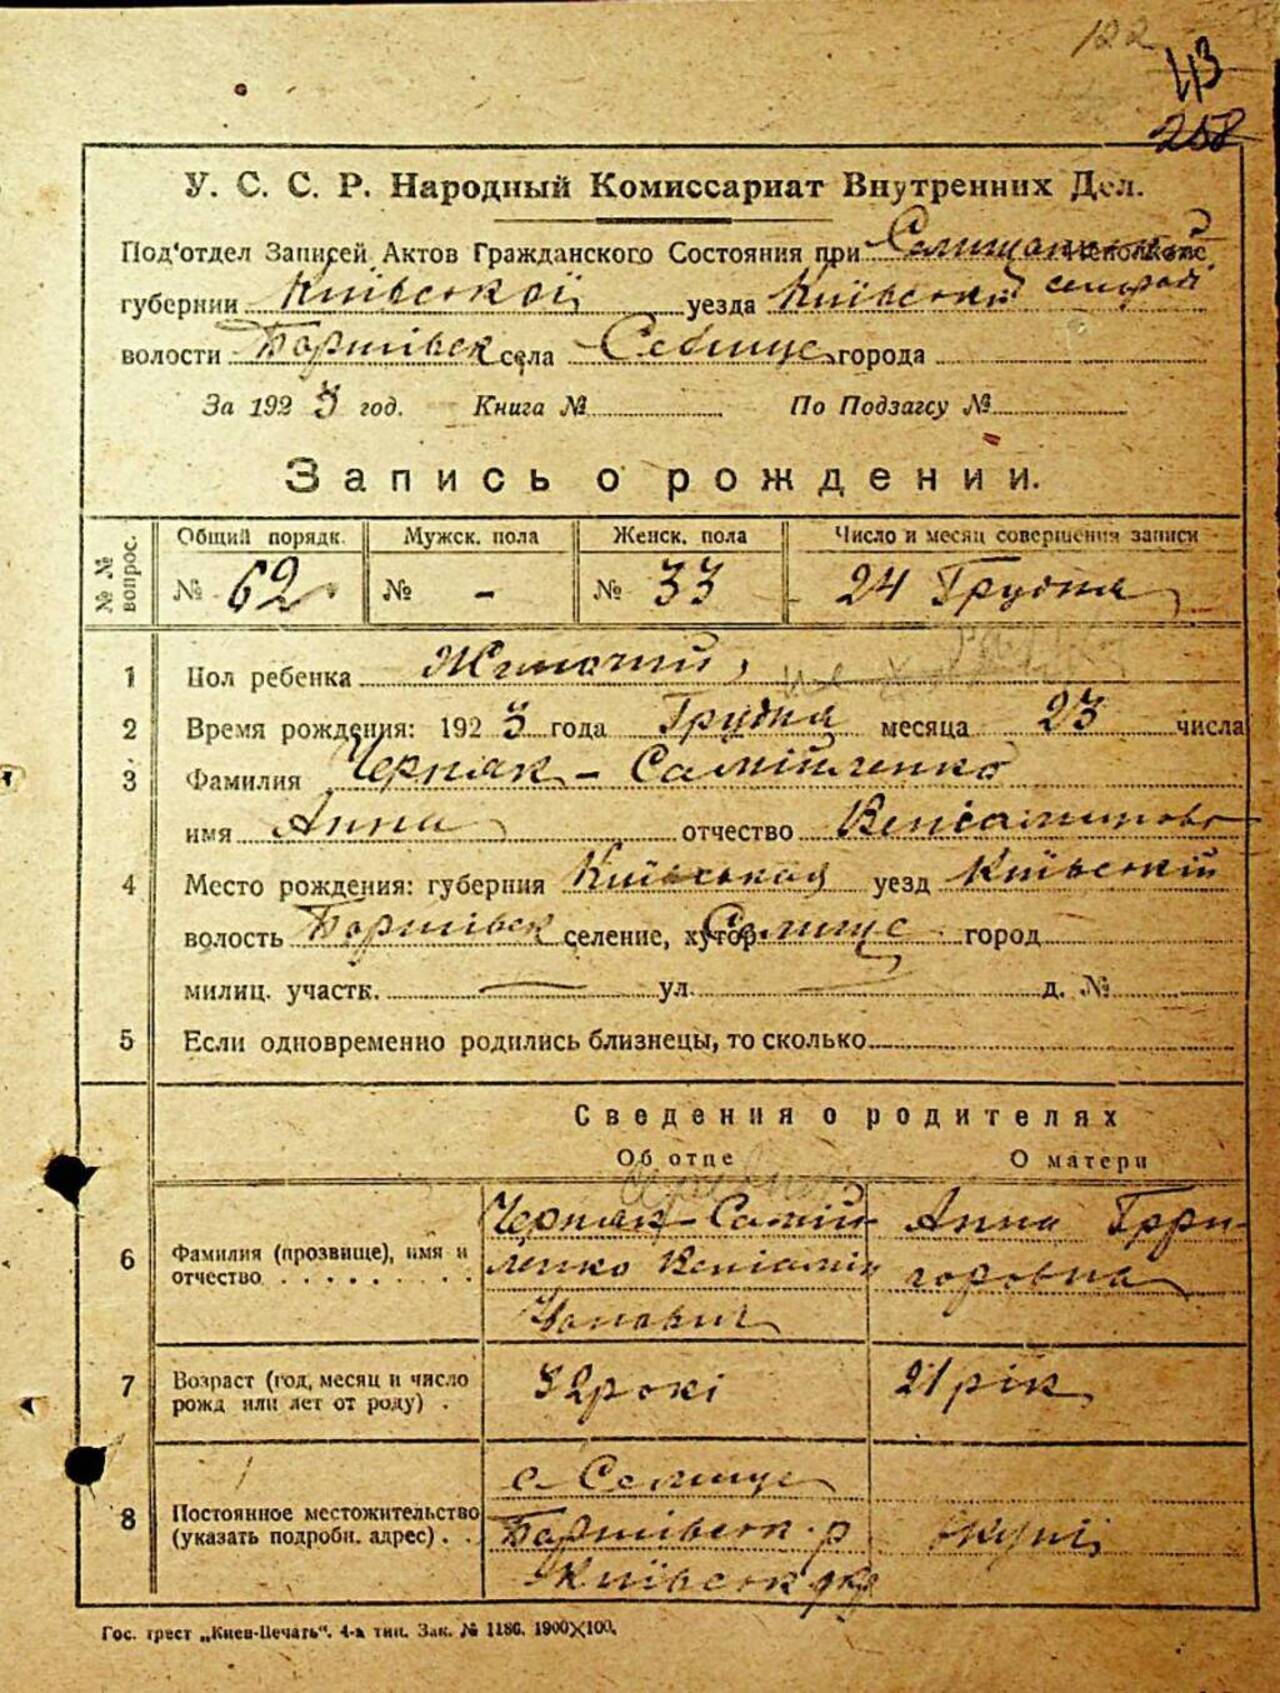 122
43
258
У. С. С. Р. Народный Комиссариат Внутренних Дел.
Под'отдел Записей Актов Гражданского Состояния при
губернии Київської уезда Київський
волости Баришівськ села Селище города
За 1925 год. Книга № По Подзагсу №
Запись о рождении.
№ № вопрос.
Общий порядк. Мужск. пола Женск. пола Число и месяц совершения записи
№ 62 № - № 33 24 Грудня
1 Пол ребенка Жиночий
2 Время рождения: 1925 года Грудня месяца 23 числа
3 Фамилия Черняк - Самійленко
имя Анна отчество Веніаминовс
4 Место рождения: губерния Київськая уезд Київський
волость Баришівськ селение, хутор Селище город
милиц. участк. — ул. — д. №
5 Если одновременно родились близнецы, то сколько
Сведения о родителях
Об отце О матери
6 Фамилия (прозвище), имя и отчество
Черняк-Самій-
ленко Веніамін
Іванович
Анна Григ-
горовна
7 Возраст (год, месяц и число рожд или лет от роду)
32 рокі 21 рік
8 Постоянное местожительство (указать подробн. адрес)
с Селище
Баришівськ. р
Київськ окр
вкупі
Гос. трест „Киев-Печать“. 4-а тип. Зак. № 1186. 1900×100.